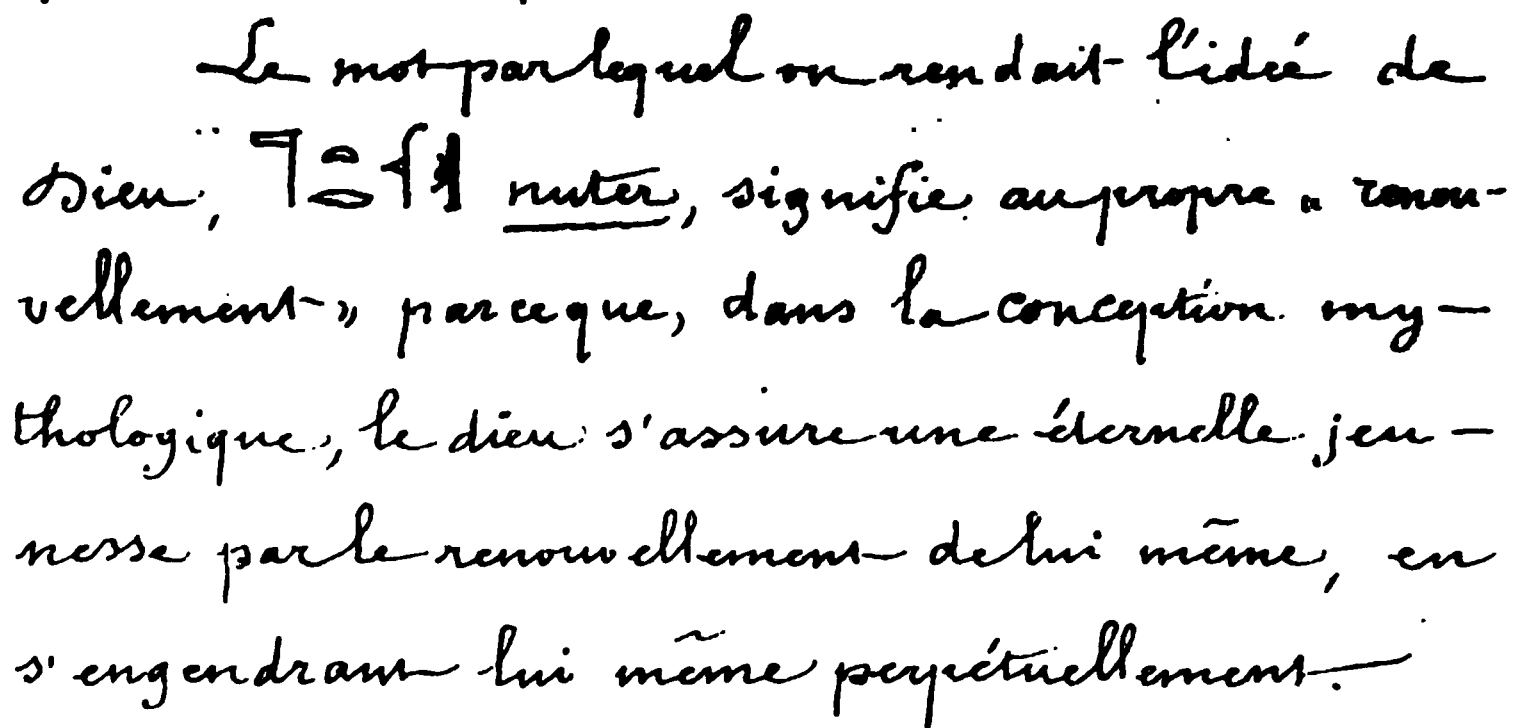 Le mot par lequel on rendait l'idée de
Dieu, 𓊹𓏏𓂋𓆳𓀭 nuter, signifie au propre « renou-
vellement » parceque, dans la conception my-
thologique, le dieu s'assure une éternelle jeu-
nesse par le renouvellement de lui même, en
s'engendrant lui même perpétuellement.